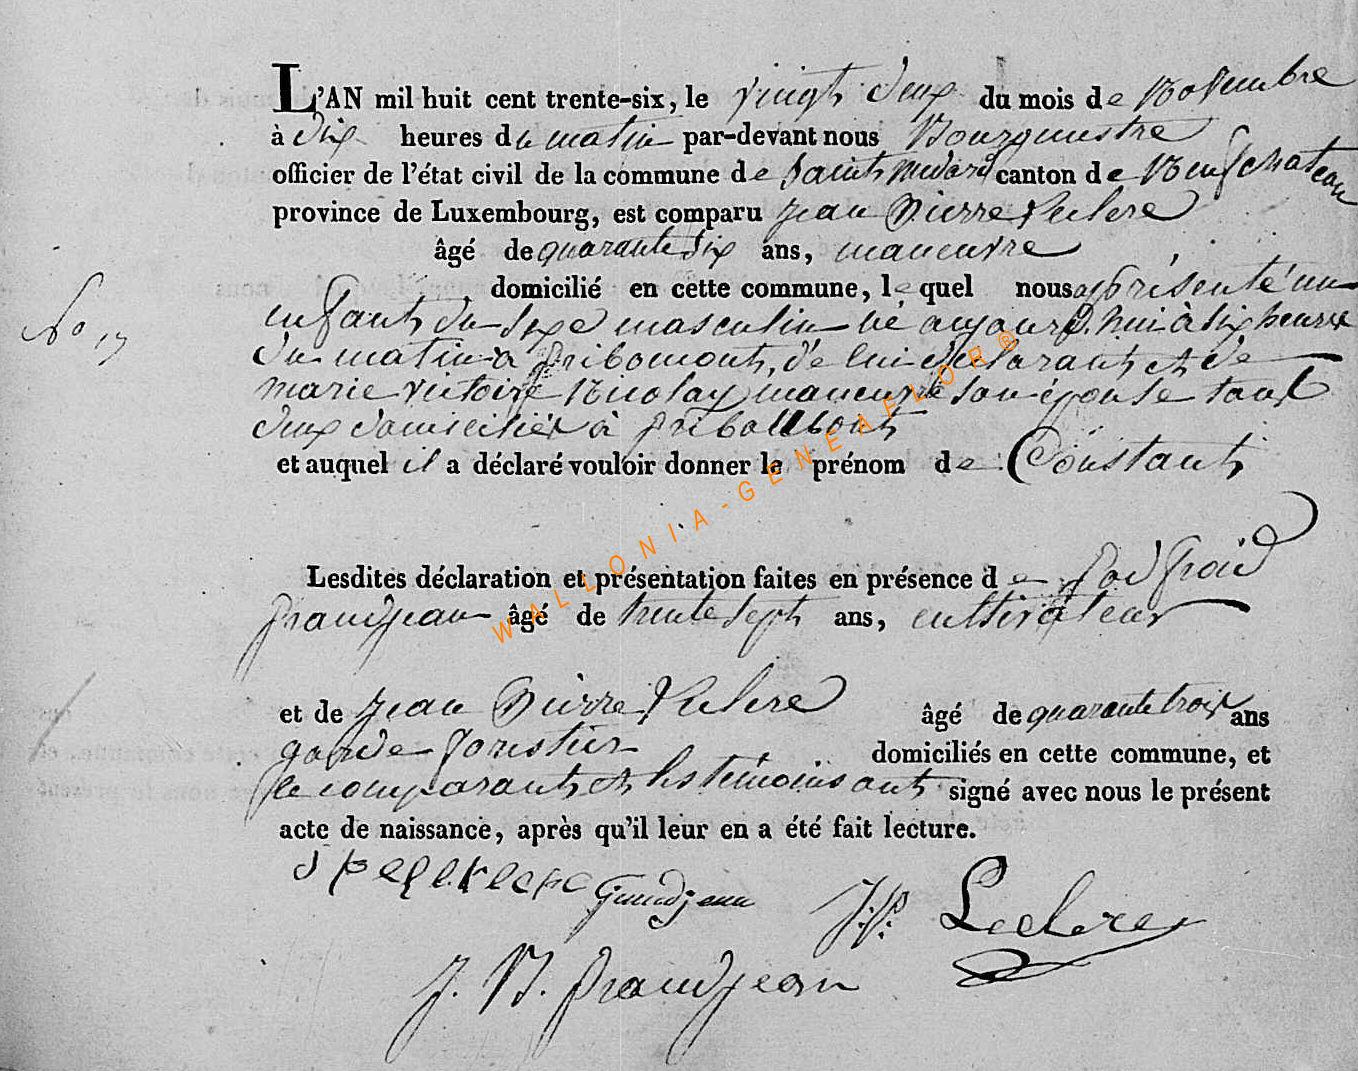 L'AN mil huit cent trente-six, le vingt deux du mois de Novembre
à dix heures du matin par-devant nous Bourgmestre
officier de l'état civil de la commune de Saint Médard canton de Neufchateau
province de Luxembourg, est comparu Jean Pierre Leclere
âgé de quarante six ans, maneuvre
domicilié en cette commune, le quel nous a présenté un
No 17
enfant du sexe masculin né aujourd'hui à six heures
du matin à gribomont, de lui déclarant et de
marie victoire Nicolay maneuvre son épouse tous
deux domiciliés à gribomont
et auquel il a déclaré vouloir donner le prénom de Constant
Lesdites déclaration et présentation faites en présence de godfroid
grandjean âgé de trente sept ans, cultivateur
et de Jean Pierre Leclere âgé de quarante trois ans
garde forestier domiciliés en cette commune, et
le comparant et les témoins ont signé avec nous le présent
acte de naissance, après qu'il leur en a été fait lecture.
Grandjean J. P. Leclere
J. N. grandjean
WALLONIA-GENEAFLOR®